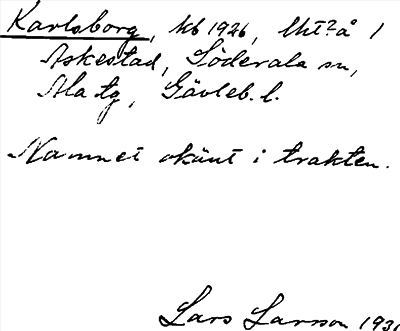 Karlsborg, kb 1926, lht?å 1
Askestad, Söderala sn,
Ala tg, Gävleb. l.
Namnet okänt i trakten.
Lars Larsson 193